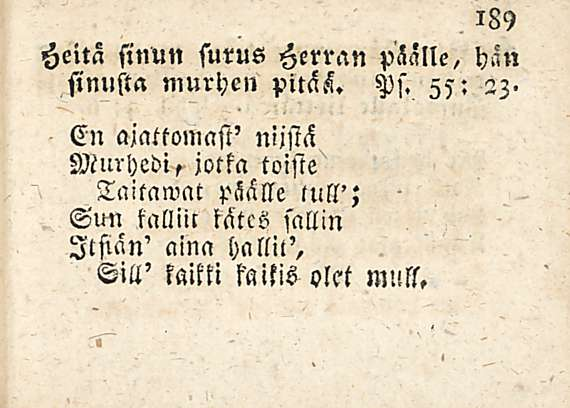 189
Heitä sinun surus Herran päälle, hän
sinusta murhen pitää. Ps. 55: 23.
En ajattomast' nijstä
Murhedi, jotka toiste
Taitawat päälle tull';
Sun kalliit kätes sallin
Itsiän' aina hallit',
Sill' kaikki kaikis olet mull.